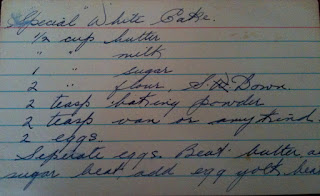 Special White Cake.
1/2 cup butter
" " milk
1 " sugar
2 " flour, S.  Down.
2 teasp baking powder
2 teasp van or any kind.
2 eggs.
Seperate eggs. Beat butter a
sugar beat, add egg yolk, bea